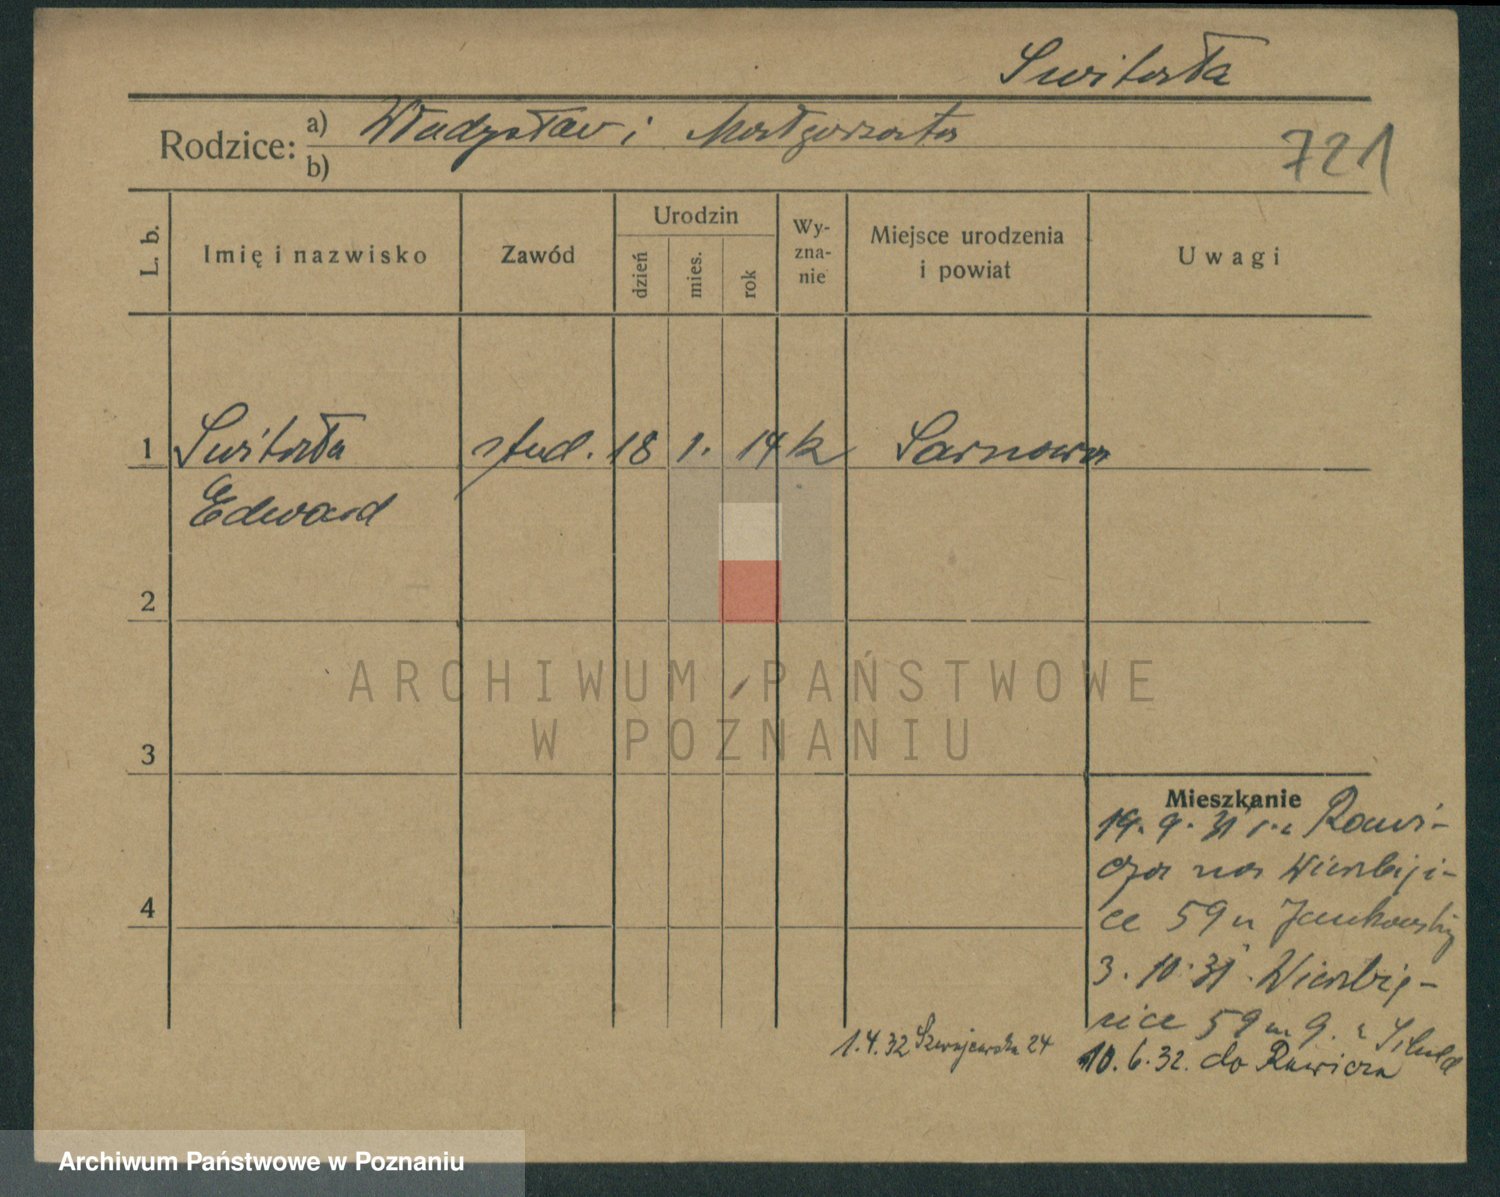 Switała
Rodzice: a) Władysław i Małgorzata
b)
721
L. b.
Imię i nazwisko
Zawód
Urodzin
dzień
mies.
rok
Wy-
zna-
nie
Miejsce urodzenia
i powiat
Uwagi
1 Switała stud. 18 1. 14 k Sarnowa
Edward
2
ARCHIWUM PAŃSTWOWE
W POZNANIU
3
Mieszkanie
19. 9. 31 Rawi-
cza na Wierzbięci-
ce 59 u Jankowskiej
4
3. 10. 31 Wierzbię-
cice 59 m 9.
1.4.32 Szwajcarska 24
10. 6. 32. do Rawicza
Archiwum Państwowe w Poznaniu